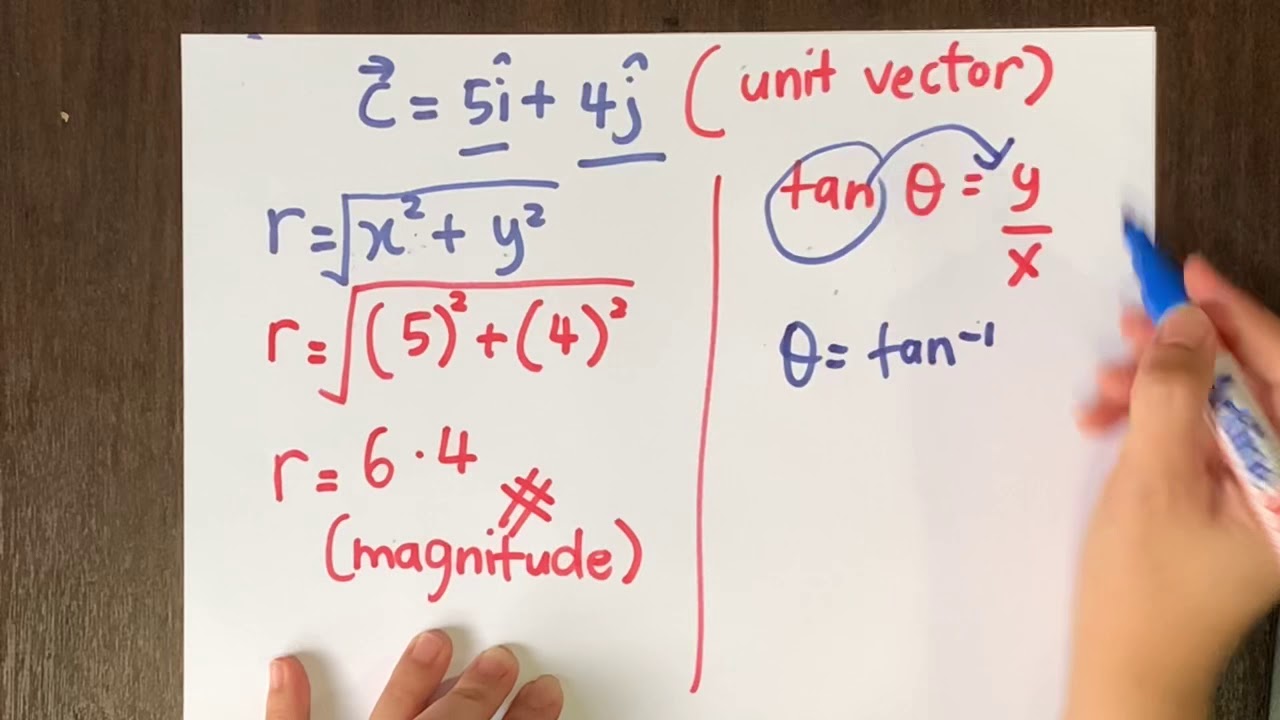 C⃗ = 5î + 4ĵ (unit vector)
r = √x² + y²
r = √(5)² + (4)²
r = 6·4 #
(magnitude)
tan θ = y/x
θ = tan⁻¹